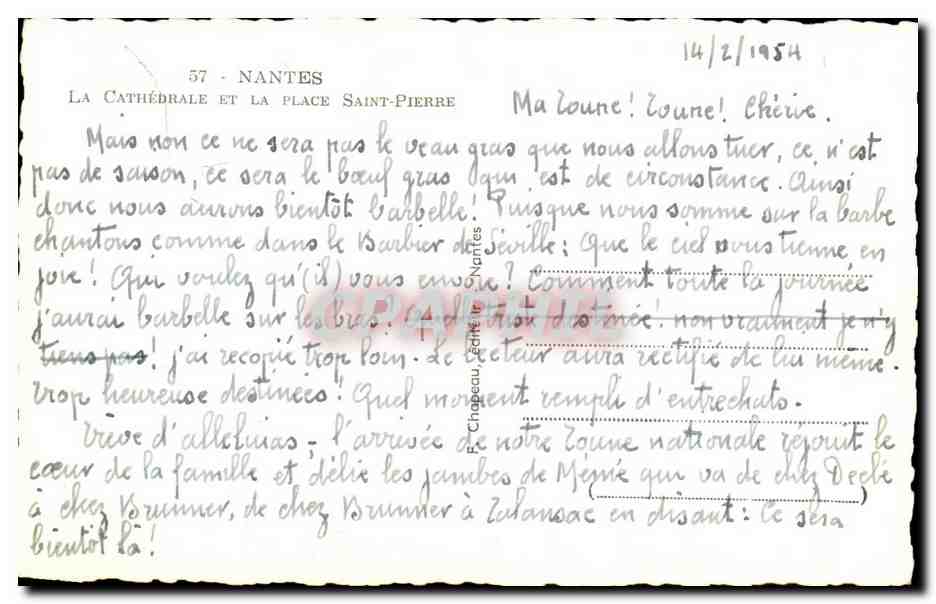 14/2/1954
57 - NANTES
LA CATHÉDRALE ET LA PLACE SAINT-PIERRE
Ma Zoune! Zoune! Chérie.
Mais non ce ne sera pas le veau gras que nous allons tuer, ce n'est
pas de saison, ce sera le bœuf gras qui est de circonstance. Ainsi
donc nous aurons bientôt barbelle! Puisque nous somme sur la barbe
chantons comme dans le Barbier de Séville: Que le ciel vous tienne en
joie! Qui voulez qu'(il) vous envoie? Comment toute la journée
j'aurai barbelle sur les bras! Quelle triste destinée! non vraiment je n'y
tiens pas! j'ai recopié trop loin. Le lecteur aura rectifié de lui même.
trop heureuse destinées! Quel moment rempli d'entrechats.
Trève d'alleluias, l'arrivée de notre Zoune nationale réjouit le
cœur de la famille et délie les jambes de Mémé qui va de chez Decle
à chez Brunner, de chez Brunner à Talansac en disant: Ce sera
bientôt là!
F. Chapeau, éditeur, Nantes